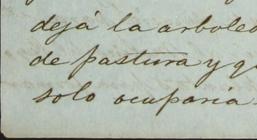 dejá la arboled
de pastura y qu
solo ocuparia